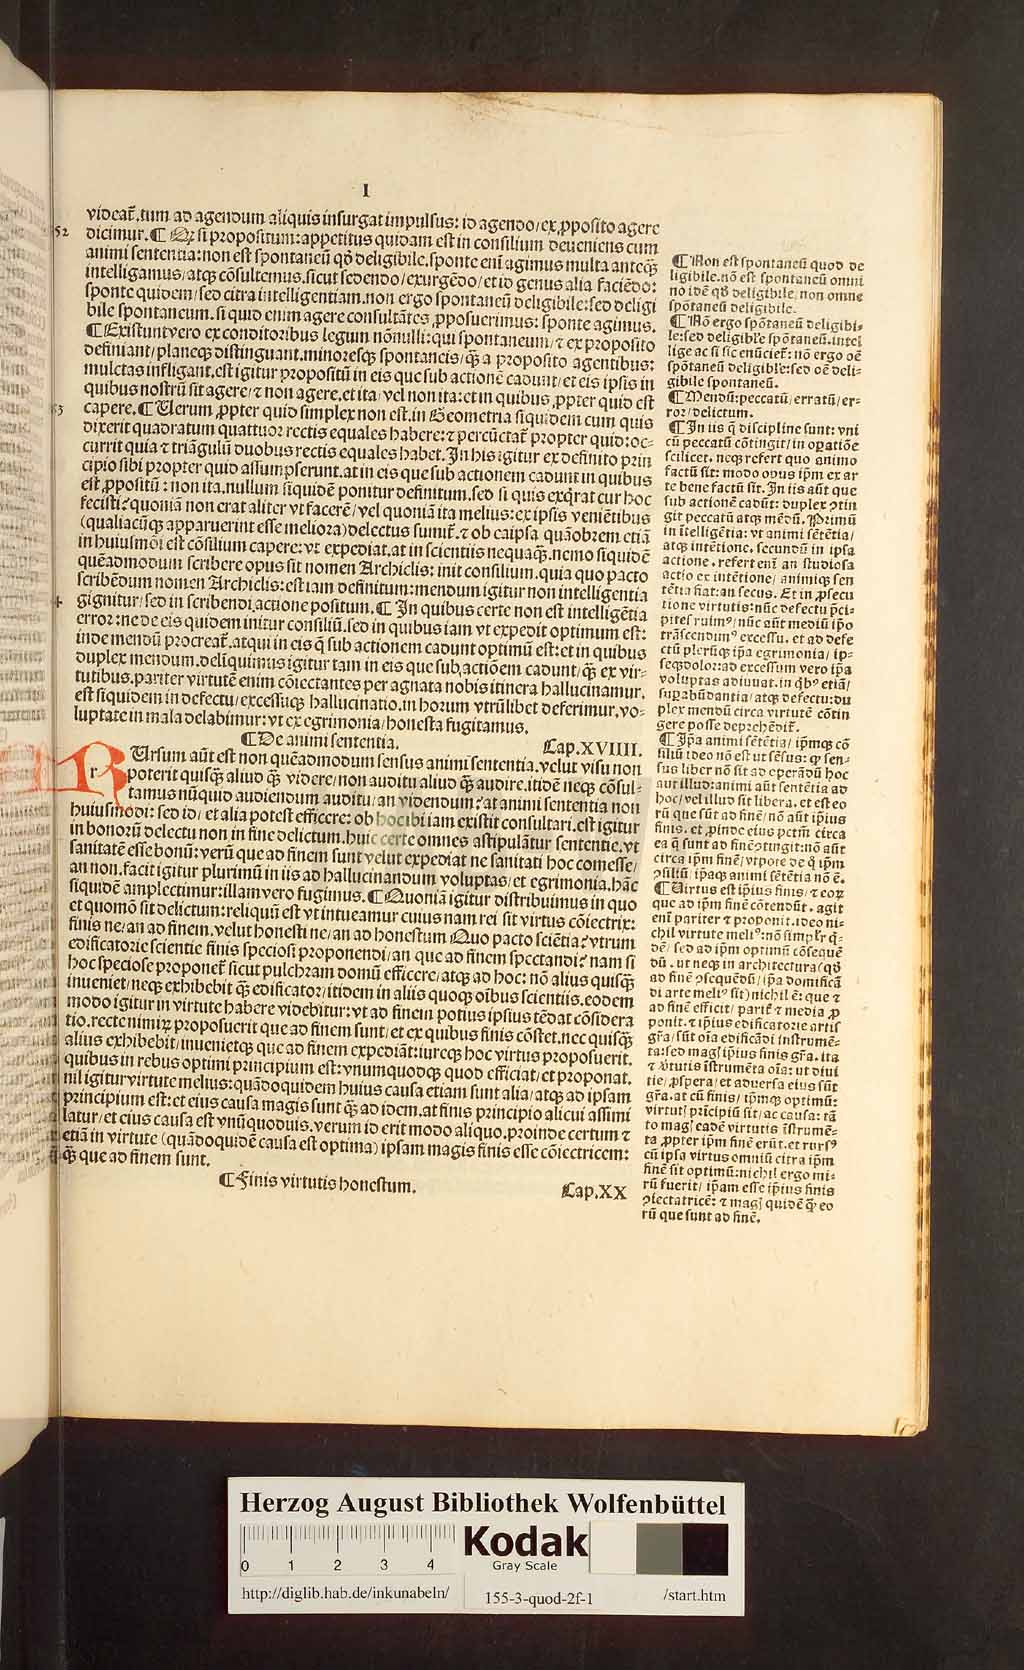 I
videat̃.tum ad agendum aliquis insurgat impulsus: id agendo/ex ꝓposito agere
52
dicimur.¶ Qꝫ si propositum:appetitus quidam est in consilium deueniens cum
animi sententia:non est spontaneũ qđ deligibile.sponte eni᷉ agimus multa anteqꝫ̃
intelligamus/atqꝫ cõsultemus.sicut sedendo/exurgẽdo/et id genus alia faciẽdo:
sponte quidem/sed citra intelligentiam.non ergo spontaneũ deligibile:sed deligi
bile spontaneum.si quid enim agere consultãtes ꝓposuerimus: sponte agimus.
¶Existunt vero ex conditoribus legum nõnulli:qui spontaneum/⁊ ex proposito
definiant/planeqꝫ distinguant.minoresqꝫ spontaneis/qꝫ̃ a proposito agentibus:
mulctas infligant.est igitur propositũ in eis que sub actionẽ cadunt/et eis ipsis in
quibus nostrũ sit agere/⁊ non agere.et ita/vel non ita:et in quibus ꝓpter quid est
53
capere.¶Uerum ꝓpter quid simplex non est.in Geometria siquidem cum quis
dixerit quadratum quattuor rectis equales habere:⁊ percũctat̃ propter quid:oc-
currit quia ⁊ triãgulũ duobus rectis equales habet.In his igitur ex definito prin
cipio sibi propter quid assumpserunt.at in eis que sub actionem cadunt in quibus
est ꝓpositũ: non ita.nullum siquidẽ ponitur definitum.sed si quis exq̃rat cur hoc
fecisti?quoniã non erat aliter vt facerẽ/vel quoniã ita melius:ex ipsis veniẽtibus
(qualiacũqꝫ apparuerint esse meliora)delectus sumit̃.⁊ ob ca ipsa quãobrem etiã
in huiusmõi est cõsilium capere:vt expediat.at in scientiis nequaqꝫ̃.nemo siquidẽ
quẽadmodum scribere opus sit nomen Archiclis:init consilium.quia quo pacto
scribẽdum nomen Archiclis:est iam definitum:mendum igitur non intelligentia
gignitur/sed in scribendi actione positum.¶ In quibus certe non est intelligẽtia
error:ne de eis quidem initur consiliũ.sed in quibus iam vt expedit optimum est:
inde mendũ procreat̃.atqui in eis q̃ sub actionem cadunt optimũ est:et in quibus
duplex mendum.deliq̃uimus igitur tam in eis que sub actiõem cadunt/qꝫ̃ ex vir-
tutibus.pariter virtutẽ enim cõiectantes per agnata nobis itinera hallucinamur.
est siquidem in defectu/excessuqꝫ hallucinatio.in horum vtrũlibet deferimur.vo-
luptate in mala delabimur:vt ex egrimonia/honesta fugitamus.
¶De animi sententia. Cap.XVIIII.
r
RUrsum aũt est non quẽadmodum sensus animi sententia.velut visu non
poterit quisqꝫ aliud qꝫ̃ videre/non auditu aliud qꝫ̃ audire.itidẽ neqꝫ cõsul-
tamus nũquid audiendum auditu/an videndum?at animi sententia non
huiusmodi:sed id/et alia potest efficere: ob hoc ibi iam existit consultari.est igitur
in bonorũ delectu non in fine delictum.huic certe omnes astipulãtur sententie.vt
sanitatẽ esse bonũ: verũ que ad finem sunt velut expediat ne sanitati hoc comesse/
an non.facit igitur plurimũ in iis ad hallucinandum voluptas/et egrimonia.hãc
siquidẽ amplectimur:illam vero fugimus.¶Quoniã igitur distribuimus in quo
et quomõ sit delictum:reliquũ est vt intueamur cuius nam rei sit virtus cõiectrix:
finis ne/an ad finem.velut honesti ne/an ad honestum Quo pacto sciẽtia?vtrum
edificatorie scientie finis speciosi proponendi/an que ad finem spectandi?nam si
hoc speciose proponet̃ sicut pulchram domũ efficere/atqꝫ ad hoc: nõ alius quisqꝫ̃
inueniet/neqꝫ exhibebit qꝫ̃ edificator/itidem in aliis quoqꝫ oĩbus scientiis.eodem
modo igitur in virtute habere videbitur:vt ad finem potius ipsius tẽdat cõsidera
tio.recte nimiꝝ proposuerit que ad finem sunt/et ex quibus finis cõstet.nec quisqꝫ̃
alius exhibebit/inuenietqꝫ que ad finem expediãt:iureqꝫ hoc virtus proposuerit.
quibus in rebus optimi principium est:vnumquodqꝫ quod efficiat/et proponat.
nil igitur virtute melius:quãdoquidem huius causa etiam sunt alia/atqꝫ ad ipsam
principium est:et eius causa magis sunt qꝫ̃ ad idem.at finis principio alicui assimi
latur/et eius causa est vnũquoduis.verum id erit modo aliquo.proinde certum ⁊
etiã in virtute (quãdoquidẽ causa est optima) ipsam magis finis esse cõiectricem:
qꝫ̃ que ad finem sunt.
¶Finis virtutis honestum. Cap.XX
¶Non est spontaneũ quod de
ligibile.nõ est spontaneũ omni
no idẽ qđ deligibile. non omne
spõtaneũ deligibile.
¶Nõ ergo spõtaneũ deligibi-
le:sed deligibi'e spõtaneũ.intel
lige ac si sic enũciet̃: nõ ergo oẽ
spõtaneũ deligibi'e:sed oẽ deli-
gibile spontaneũ.
¶Mendũ:peccatũ/erratũ/er-
ror/delictum.
¶In iis q̃ discipline sunt: vni
cũ peccatũ cõtingit/in oꝑatiõe
scilicet. neqꝫ refert quo animo
factũ sit: modo opus ip̃m ex ar
te bene factũ sit. In iis aũt que
sub actionẽ cadũt: duplex ↄtin
git peccatũ atqꝫ mẽdũ. Primũ
in ĩtelligẽtia: vt animi sẽtẽtia/
atqꝫ intẽtione. secundũ in ipsa
actione. refert eni᷉ an studiosa
actio ex intẽtione/ animiqꝫ sen
tẽtia fiat:an secus. Et in ꝓsecu
tione virtutis:nũc defectu p̃ci-
pites ruimꝰ/ nũc aũt mediũ ip̃o
trãscendimꝰ excessu. et ad defe
ctũ plerũqꝫ ip̃a egrimonia/ ip-
seqꝫ dolor:ad excessum vero ip̃a
voluptas adiuuat. in q̃bꝰ etiã/
suꝑabũdantia/ atqꝫ defectu:du
plex mendũ circa virtutẽ cõtin
gere posse deprehẽdit̃.
¶Ip̃a animi sẽtẽtia/ ip̃mqꝫ cõ
siliũ ideo nõ est ut sẽsus: qꝫ sen-
sus liber nõ sit ad operãdũ hoc
aut illud:animi aũt sentẽtia ad
hoc/vel illud sit libera. et est eo
rũ que sũt ad finẽ/ nõ aũt ip̃ius
finis. et ꝓinde eius pctm̃ circa
ea q̃ sunt ad finẽ ↄtingit: nõ aũt
circa ip̃m finẽ/ vtpote de q̃ ip̃m
ↄsiliũ/ ip̃aqꝫ animi sẽtẽtia nõ ẽ.
¶Uirtus est ip̃ius finis/ ⁊ eoꝝ
que ad ip̃m finẽ cõtendũt. agit
eni᷉ pariter ⁊ proponit.ideo ni-
chil virtute meliꝰ: nõ simpl'r q̃-
dẽ/ sed ad ip̃m optimũ cõsequẽ
dũ. ut neqꝫ in architectura (qđ
ad finẽ ↄsequẽdũ/ ip̃a domificã
di arte meliꝰ sit) nichil ẽ: que ⁊
ad finẽ efficit/ parit̃ ⁊ media ꝓ
ponit. ⁊ ip̃ius edificatorie artis
gr̃a/ sũt oĩa edificãdi instrumẽ-
ta:sed mag' ip̃ius finis gr̃a. ita
⁊ v̾tutis ĩstrumẽta oĩa: ut diui
tie/ ꝓspera/ et aduersa eius sũt
gr̃a. at cũ finis/ ip̃mqꝫ optimũ:
virtut' pri᷉cipiũ sit/ ac causa: tã
to mag' eadẽ virtutis ĩstrumẽ-
ta ꝓpter ip̃m finẽ erũt. et rursꝰ
cũ ipsa virtus omniũ citra ip̃m
finẽ sit optimũ: nichil ergo mi-
rũ fuerit/ ip̃am esse ip̃ius finis
ↄiectatricẽ: ⁊ mag' quidẽ qꝫ̃ eo
rũ que sunt ad finẽ.
Herzog August Bibliothek Wolfenbüttel
0 1 2 3 4
Kodak
Gray Scale
http://diglib.hab.de/inkunabeln/ 155-3-quod-2f-1 /start.htm